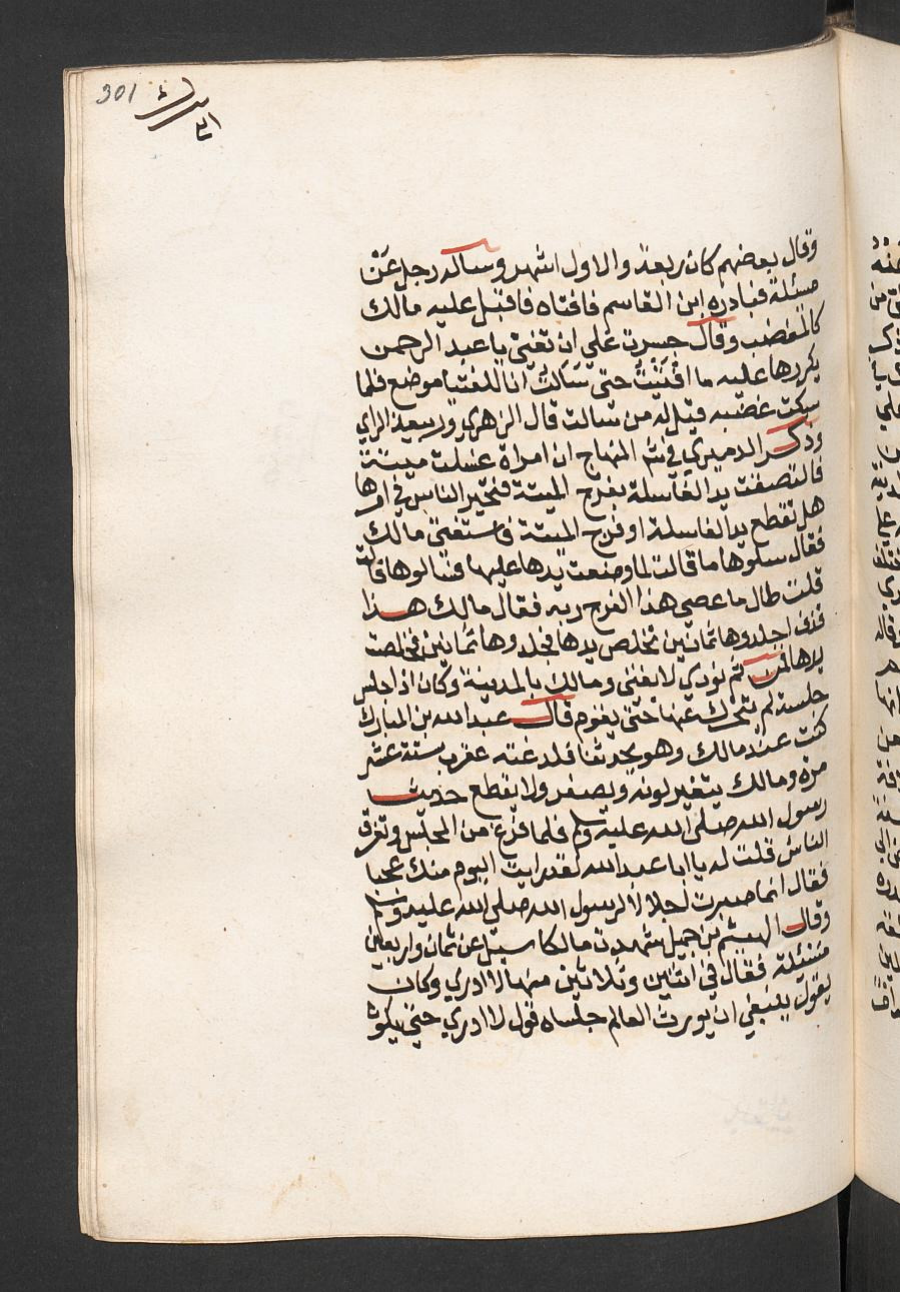 301
وقال بعضهم كان ربعة والاول اشهر وساله رجل عن
مسئلة فبادره ابن القاسم فافتاه فاقبل عليه مالك
كالمغضب وقال جسرت على ان تفتي يا عبد الرحمن
يكررها عليه ما افتيت حتى سالت انا للفتيا موضع فلما
سكت غضبه قيل له من سالت قال الزهري وربيعة الراي
وذكر الدميري في المنهاج ان امراة غسلت ميتة
فالتصقت يد الغاسلة بفرج الميتة فتحير الناس في امرها
هل تقطع يد الغاسلة او فرج الميتة فاستفتي مالك
فقال سلوها ما قالت لما وضعت يدها عليها فسالوها قالت
قلت طال ما عصى هذا الفرج ربه فقال مالك هذا
قذف اجلدوها ثمانين تخلص يدها فجلدوها ثمانين فخلصت
يدها فمن ثم نودي لا يفتى ومالك بالمدينة وكان اذا جلس
جلسة لم يتحرك عنها حتى يقوم قال عبد الله بن المبارك
كنت عند مالك وهو يحدثنا فلدغته عقرب ستة عشر
مرة ومالك يتغير لونه ويصفر ولا يقطع حديث
رسول الله صلى الله عليه وسلم فلما فرغ من المجلس وتفرق
الناس قلت له يا ابا عبد الله لقد رايت اليوم منك عجبا
فقال انما صبرت اجلالا لرسول الله صلى الله عليه وسلم
وقال الهيثم بن جميل شهدت مالكا سيل عن ثمان واربعين
مسئلة فقال في اثنين وثلاثين منها لا ادري وكان
يقول ينبغي ان يورث العالم جلساه قول لا ادري حتى يكون